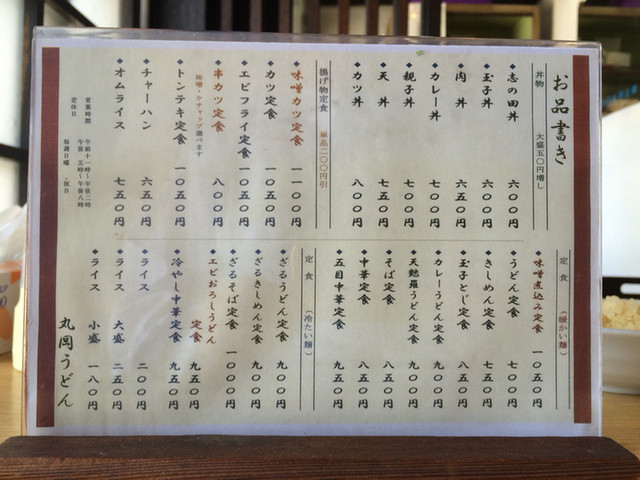 お品書き
丼物 大盛五〇円増し
◆志の田丼 六〇〇円
◆玉子丼 六〇〇円
◆肉丼 六五〇円
◆カレー丼 七〇〇円
◆親子丼 七〇〇円
◆天丼 七五〇円
◆カツ丼 八〇〇円
揚げ物定食 単品二〇〇円引
◆味噌カツ定食 一一〇〇円
◆カツ定食 一〇五〇円
◆エビフライ定食 一〇五〇円
◆串カツ定食 八〇〇円
味噌・ケチャップ選べます
◆トンテキ定食 一〇五〇円
◆チャーハン 六五〇円
◆オムライス 七五〇円
営業時間 午前十一時～午後二時
午後 五時～午後八時
定休日 毎週日曜・祝日
定食（暖かい麺）
◆味噌煮込み定食 一〇五〇円
◆うどん定食 七〇〇円
◆きしめん定食 七五〇円
◆玉子とじ定食 八五〇円
◆カレーうどん定食 九〇〇円
◆天麩羅うどん定食 九〇〇円
◆そば定食 八五〇円
◆中華定食 八五〇円
◆五目中華定食 九五〇円
定食（冷たい麺）
◆ざるうどん定食 九〇〇円
◆ざるきしめん定食 九〇〇円
◆ざるそば定食 一〇〇〇円
◆エビおろしうどん
定食 九五〇円
◆冷やし中華定食 九五〇円
◆ライス 二〇〇円
◆ライス 大盛 二五〇円
◆ライス 小盛 一八〇円
丸岡うどん